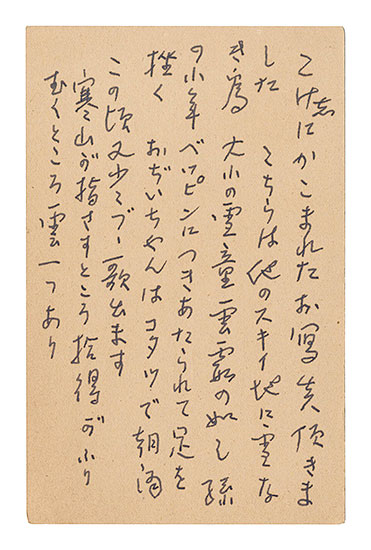 こけ志にかこまれたお寫真頂きま
した　こちらは他のスキイ地に雪な
き為　大小の雪童雲霞の如し　孫
の小年ベッピンにつきあたられて足を
挫く　おぢいちやんはコタツで朝酒
この頃又少々づゝ歌出ます
寒山が指さすところ拾得がふり
むくところ雲一つあり